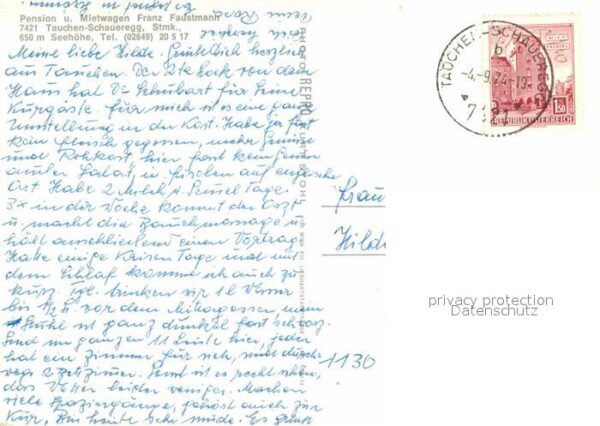 Pension u. Mietwagen Franz Faustmann
7421 Tauchen-Schaueregg, Stmk.,
650 m Seehöhe, Tel. (02649) 20 5 17
Meine liebe Hilde. herzlich
aus Tauchen. Der 2te Stock von dem
Haus hat Dr. für seine
Kurgäste. Für mich ist es eine ganz
Umstellung in der Kost. Habe ja fast
kein Fleisch gegessen, mehr Gemüse
und Rohkost, hier fast kein Gemüse
außer Salat, u. auf englische
Art. Habe 2 Milch u. Semmel Tage.
3x in der Woche kommt der Arzt
u. macht die Bauchmassage u.
hält anschließend einen Vortrag.
Hatte einige Krisen Tage und mit
dem Schlaf komme ich auch zu
kurz. Tgl. trinken wir 1 l Wasser
bis 1/2 l. vor dem Mittagessen, mein
Stuhl ist ganz dunkel fast schwarz.
Sind im ganzen 11 Leute hier, jeder
hat ein Zimmer für sich, sind durch-
wegs 2 Bettzimmer. Sonst ist es recht schön,
das Wetter leider weniger. Machen
viele Spaziergänge, gehört auch zur
Kur. Bin heute sehr müde. Es
PHOTO REPRO KURT STOHL
Frau
Hilde
1130
TAUCHEN-SCHAUEREGG
-4.-9.74-19
7421
1.50
REPUBLIK ÖSTERREICH
privacy protection
Datenschutz